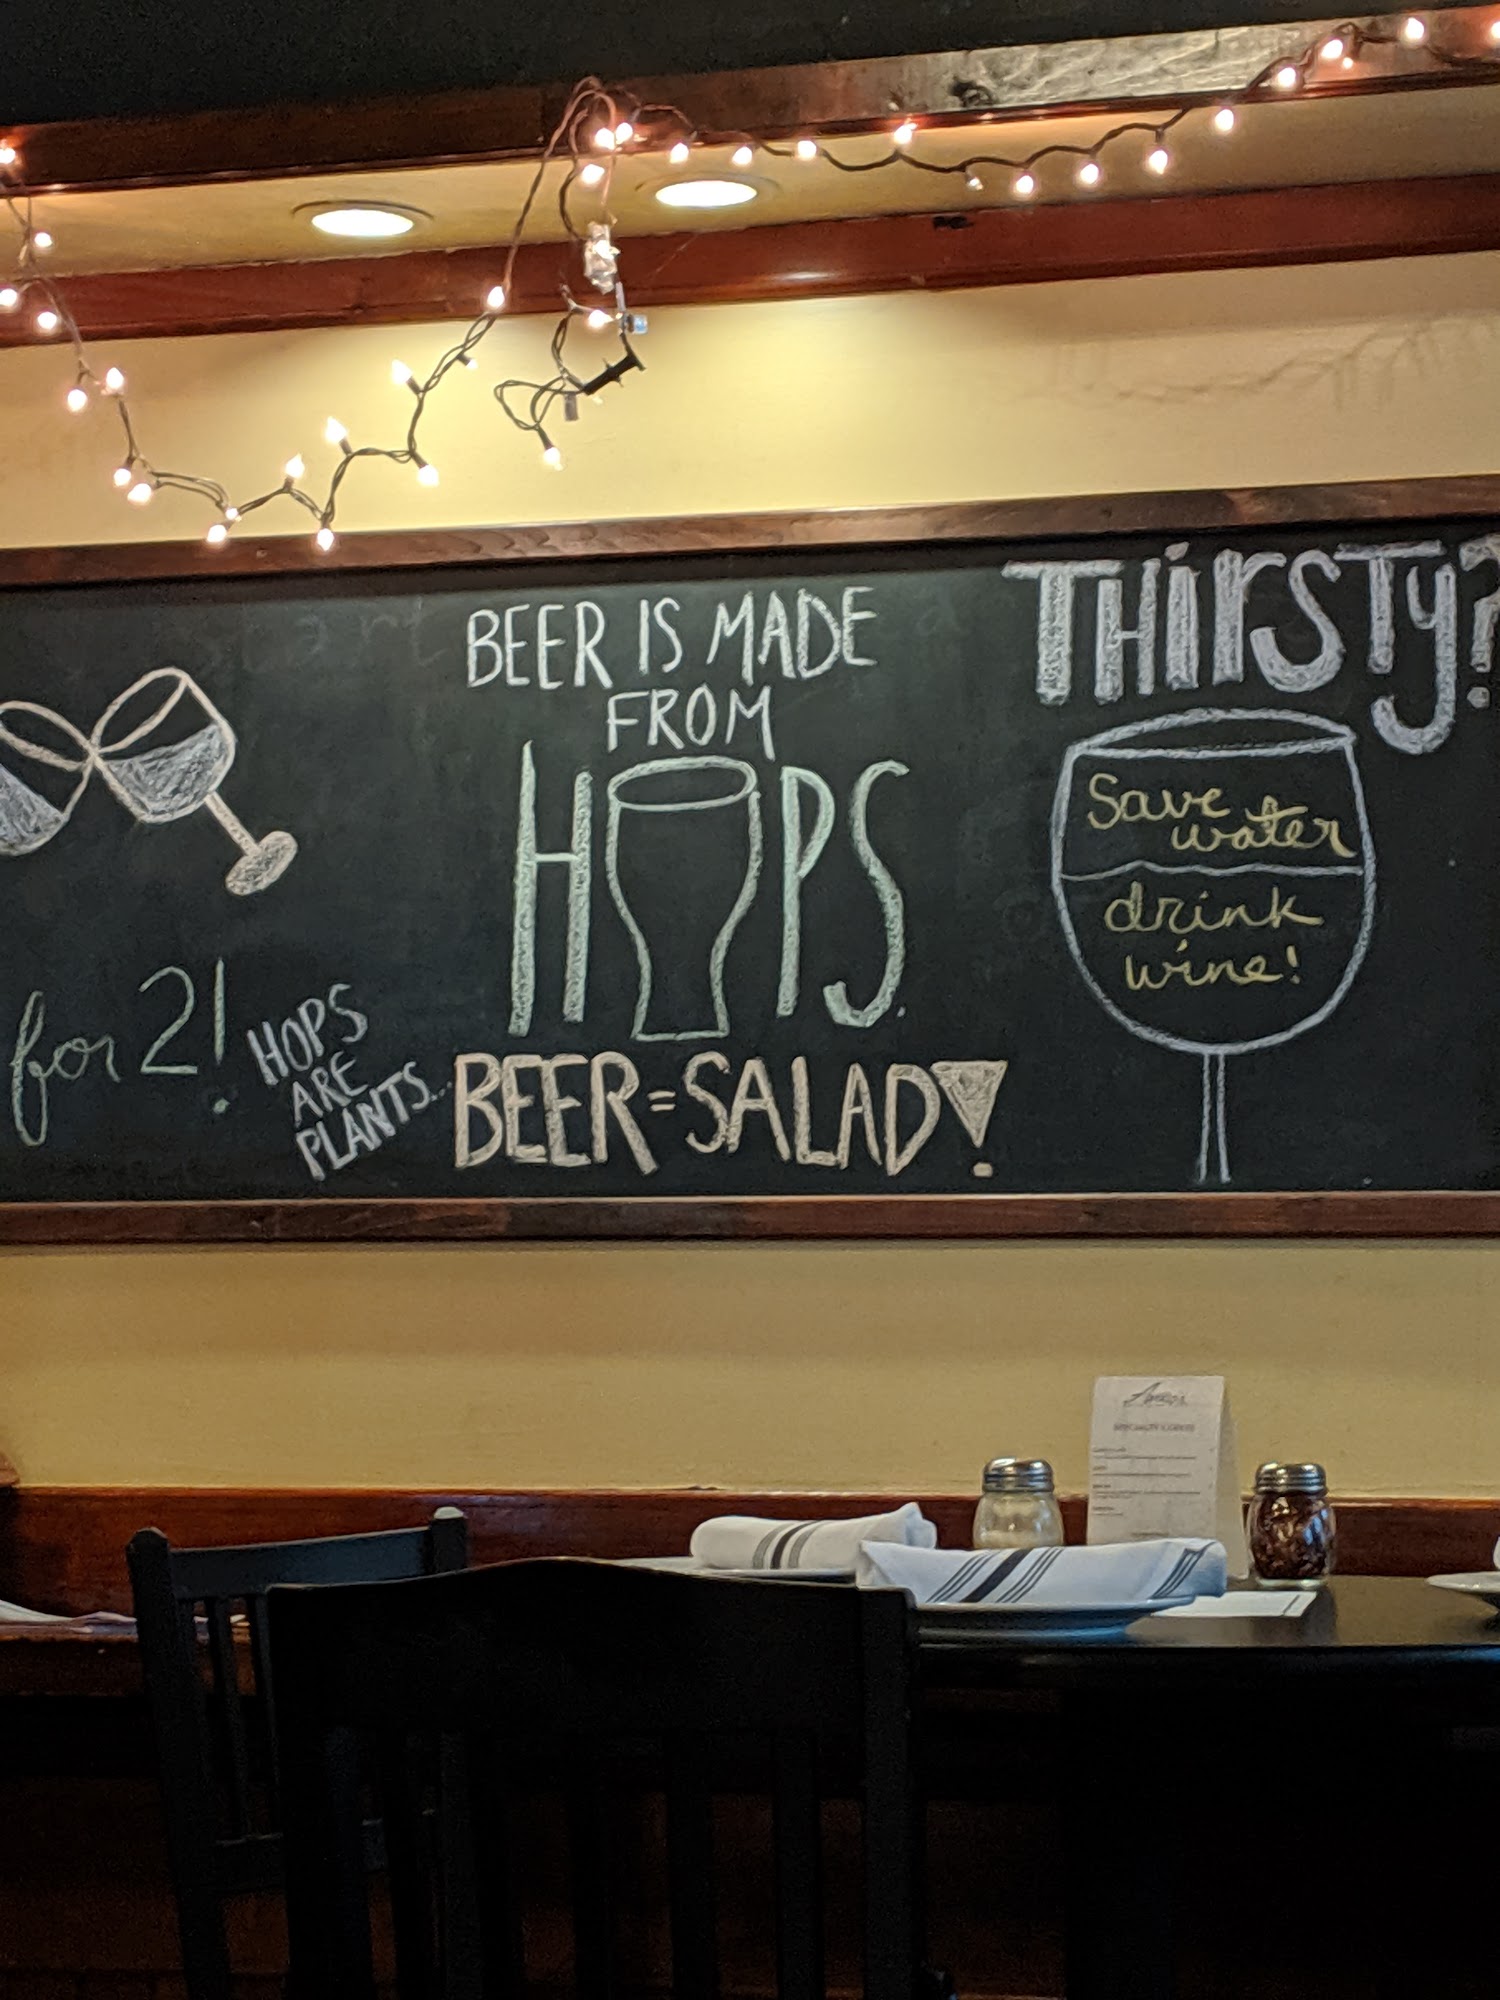 for 2!
HOPS
ARE
PLANTS...
BEER IS MADE
FROM
HOPS.
BEER=SALAD!
THIRSTY?
Save
water
drink
wine!